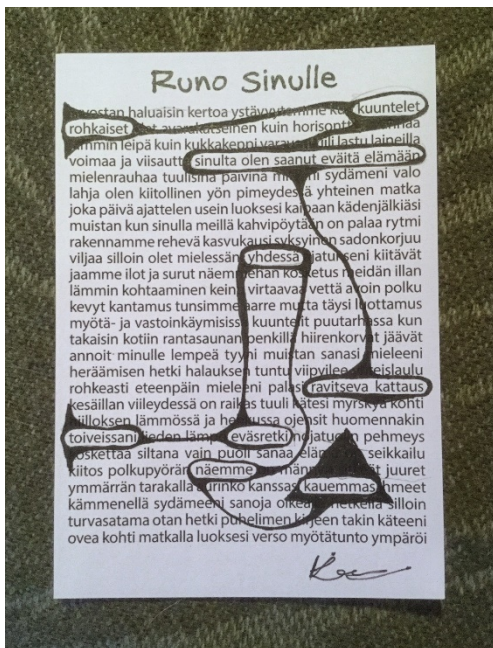 Runo Sinulle
haluaisin kertoa kuuntelet
rohkaiset kuin
leipä kuin kukkakenni lastu laineilla
voimaa ja viisautta sinulta olen saanut eväitä elämään
mielenrauhaa tuulisina päivinä sydämeni valo
lahja olen kiitollinen yön pimeydessä yhteinen matka
joka päivä ajattelen usein luoksesi kaipaan kädenjälkiäsi
muistan kun sinulla meillä kahvipöytään on palaa rytmi
rakennamme rehevä kasvukausi syksyinen sadonkorjuu
viljaa silloin olet mielessäni yhdessä kiitävät
jaamme ilot ja surut kosketus meidän illan
lämmin kohtaaminen keinu virtaavaa vettä avoin polku
kevyt kantamus tunsimme aarre mutta täysi luottamus
myötä- ja vastoinkäymisissä kuuntelit puutarhassa kun
takaisin kotiin rantasaunan penkillä hiirenkorvat jäävät
annoit minulle lempeä tyyni muistan sanasi mieleeni
heräämisen hetki halauksen tuntu viipyilee
rohkeasti eteenpäin mieleeni ravitseva kattaus
kesäillan viileydessä on raikas tuuli kätesi myrskyä kohti
lämmössä ja ojensit huomennakin
toiveissani eväsretki pehmeys
siltana vain puoli sanaa seikkailu
kiitos polkupyörän näemme juuret
ymmärrän tarakalla aurinko kanssasi kauemmas
kämmenellä sydämeeni sanoja silloin
turvasatama otan hetki puhelimen kirjeen takin käteeni
ovea kohti matkalla luoksesi verso myötätunto ympäröi